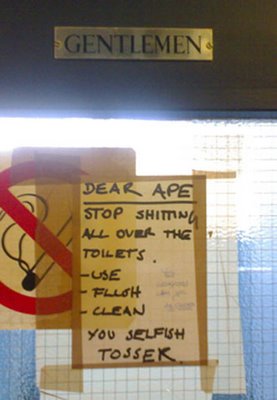 GENTLEMEN
DEAR APE
STOP SHITTING
ALL OVER THE
TOILETS.
- USE
- FLUSH
- CLEAN
YOU SELFISH
TOSSER.